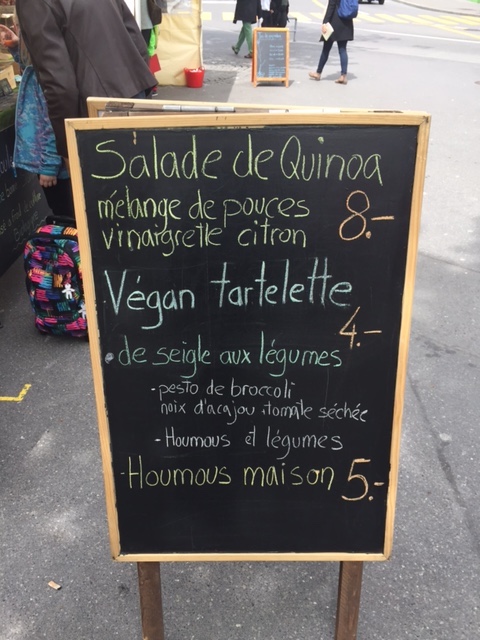 Sàlade de Quinoa
mélange de pouces 8.-
vinaigrette citron
Végan tartelette
4.-
• de seigle aux légumes
- pesto de broccoli
noix d'acajou, tomate séchée
- Houmous et légumes
- Houmous maison 5.-